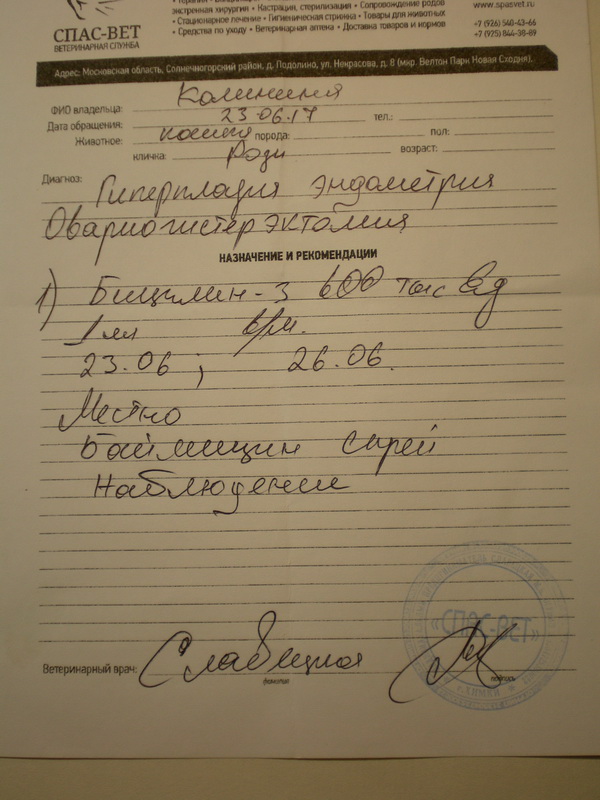 СПАС-ВЕТ
ВЕТЕРИНАРНАЯ СЛУЖБА
экстренная хирургия • Кастрация, стерилизация • Сопровождение родов
• Стационарное лечение • Гигиеническая стрижка • Товары для животных
• Средства по уходу • Ветеринарная аптека • Доставка товаров и кормов
www.spasvet.ru
+7 (926) 540-43-66
+7 (925) 844-38-89
Адрес: Московская область, Солнечногорский район, д. Подолино, ул. Некрасова, д. 8 (мкр. Велтон Парк Новая Сходня).
ФИО владельца: Калинина
Дата обращения: 23.06.17 тел.:
Животное: кошка порода: пол:
кличка: Роди возраст:
Диагноз: Гиперплазия эндометрия
Овариогистерэктомия
НАЗНАЧЕНИЕ И РЕКОМЕНДАЦИИ
1) Бициллин-3 600 тыс ед
1 мл в/м.
23.06 ; 26.06.
Местно
спрей
Наблюдение
Ветеринарный врач:
фамилия подпись
«СПАС-ВЕТ»
г.ХИМКИ